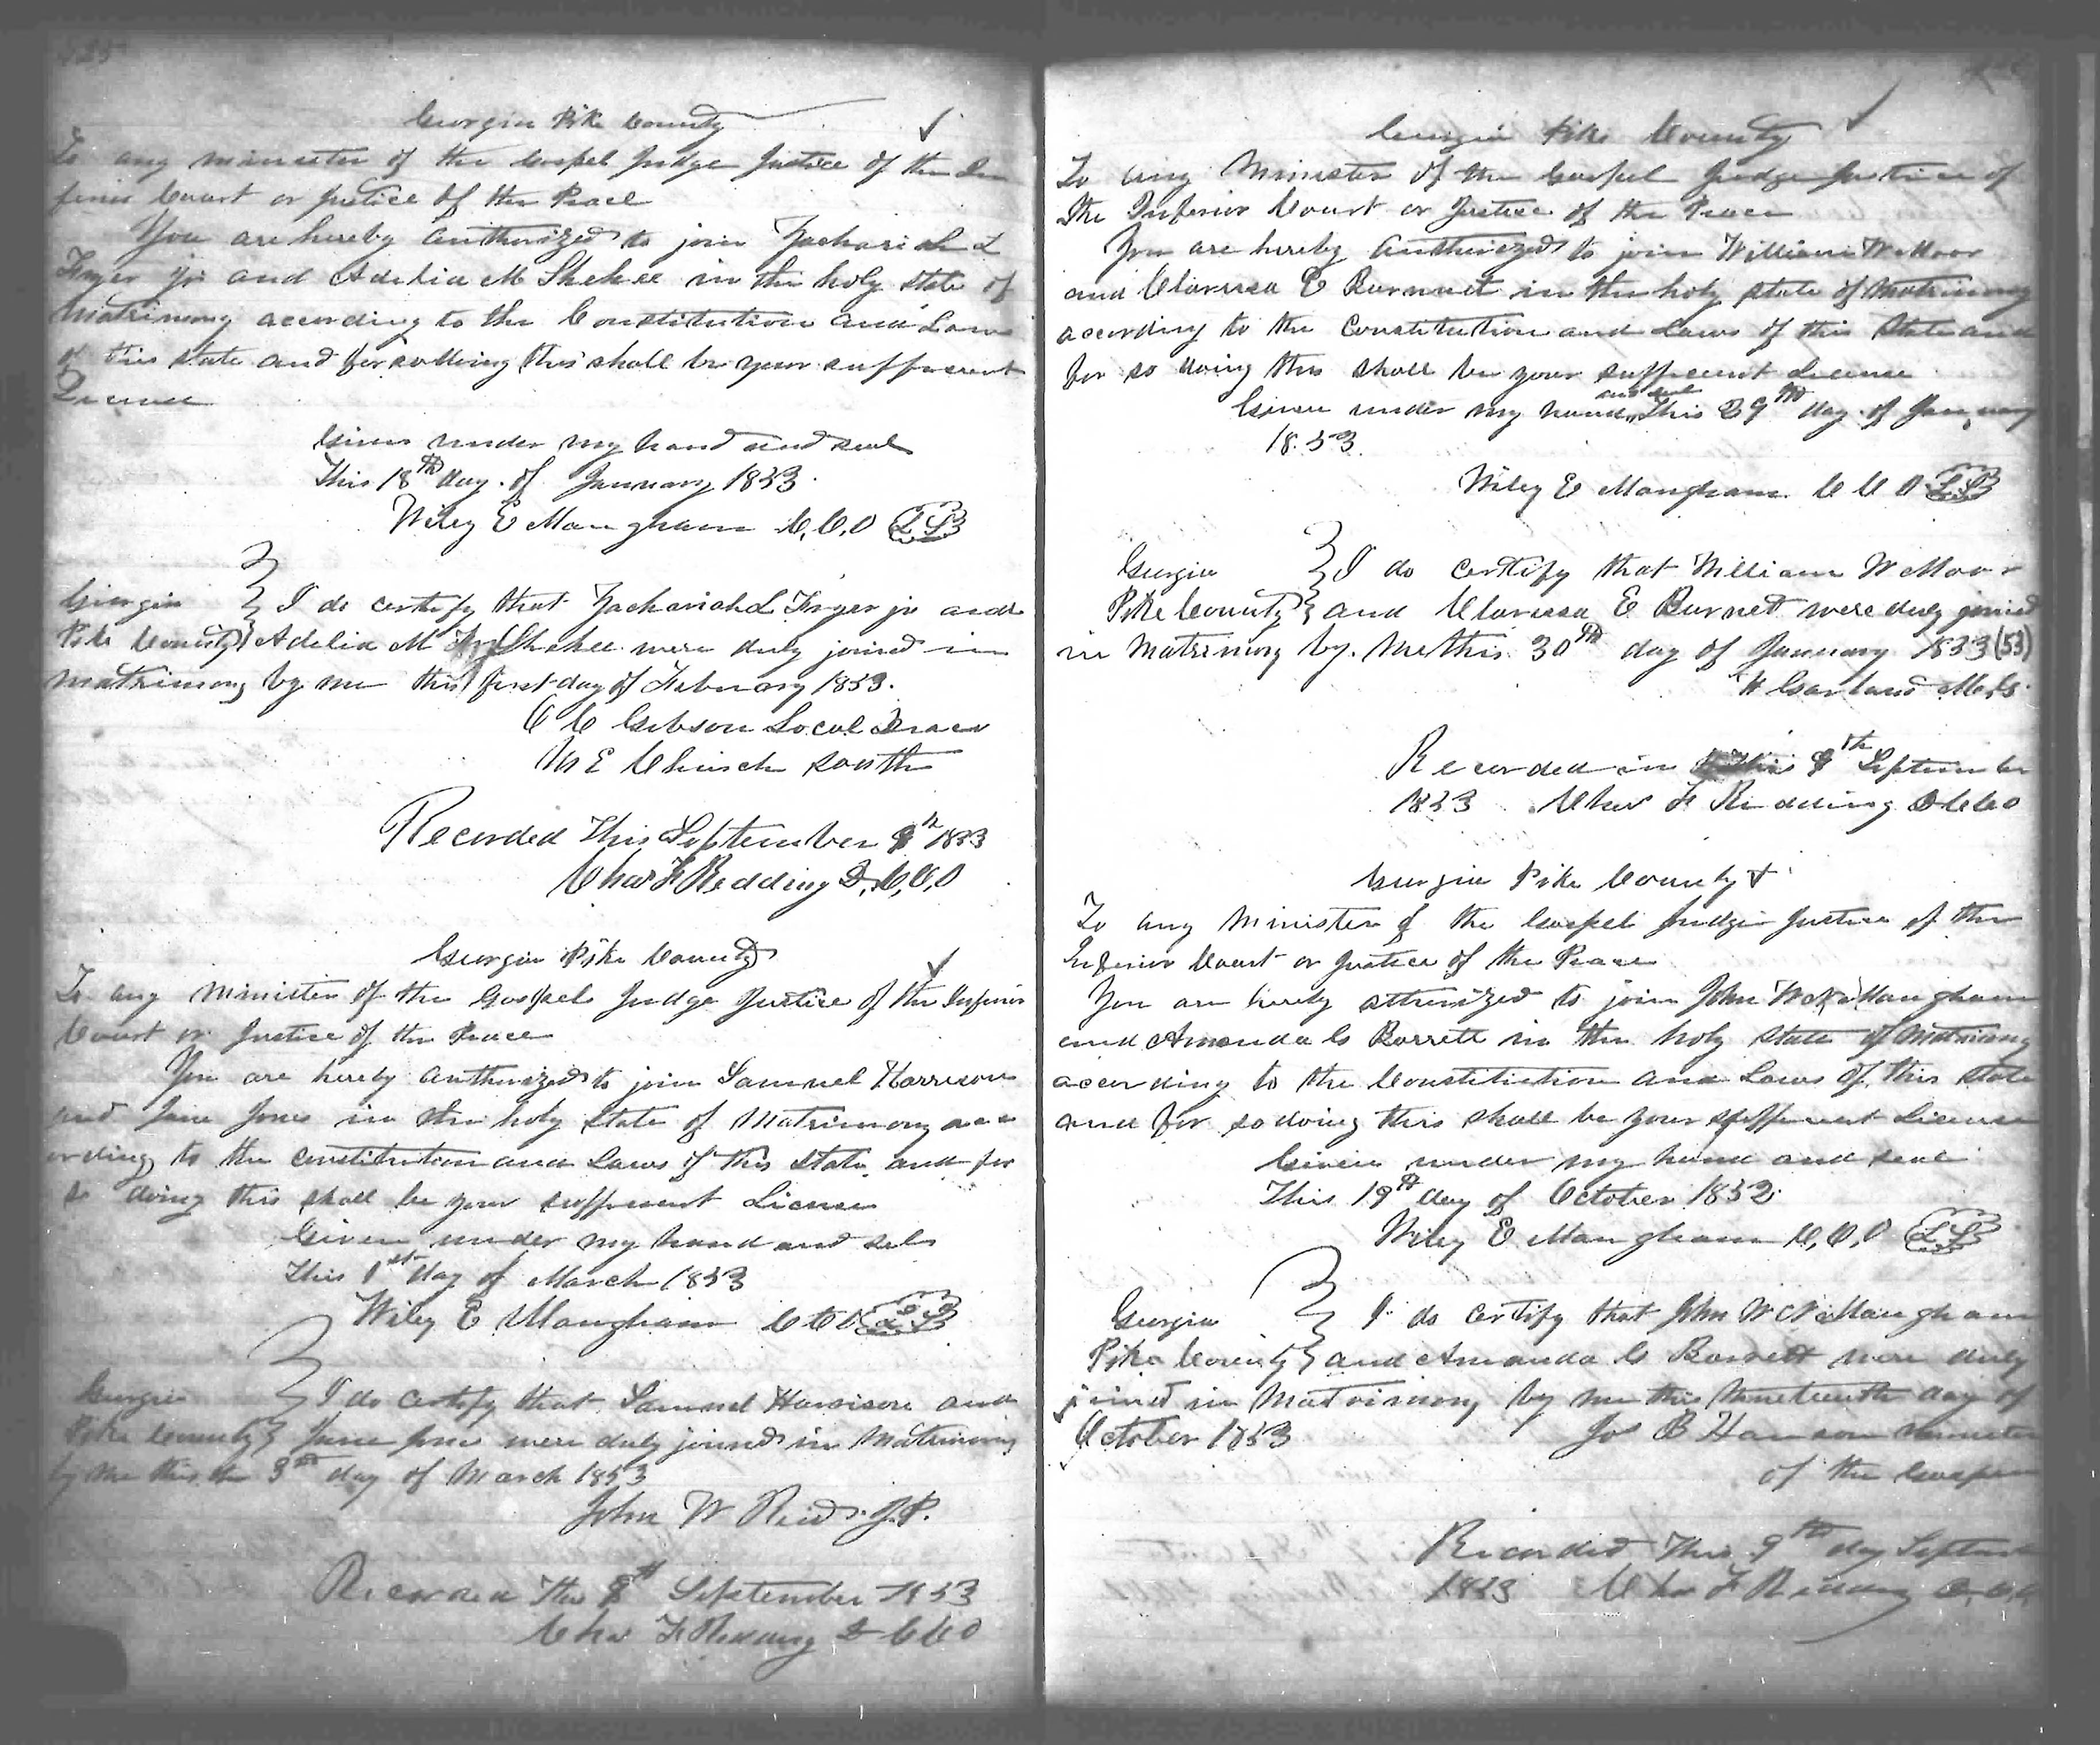 Georgia Pike County
To any minister of the Gospel Judge Justice of the In
ferior Court or justice of the Peace
You are hereby authorized to join Zachariah L
Fryer jr and Adelia M Shehee in the holy state of
Matrimony according to the Constitution and Laws
of this state and for so doing this shall be your sufficient
License
Given under my hand and seal
This 18th day of January 1853
Wiley E Mangham C.C.O LS
Georgia
Pike County I do certify that Zachariah L Fryer jr and
Adelia M Shehee were duly joined in
matrimony by me this first day of February 1853.
C C Gibson Local Deac
M E Church South
Recorded This September 8th 1853
Chas F Redding D.C.C.O
Georgia Pike County
To any Minister of the Gospel Judge Justice of the Inferior
Court or Justice of the Peace
You are hereby authorized to join Samuel Harrison
and Jane Jones in the holy state of Matrimony acc
ording to the constitution and Laws of this state and for
so doing this shall be your sufficient License
Given under my hand and seal
This 1st day of March 1853
Wiley E Mangham C C O LS
Georgia
Pike County I do certify that Samuel Harrison and
Jane Jones were duly joined in Matrimony
by me this the 3rd day of March 1853
John W Reid J.P.
Recorded the 8th September 1853
Chas F Redding D C C O
Georgia Pike County
To any Minister of the Gospel Judge Justice of
the Inferior Court or Justice of the Peace
You are hereby authorized to join William W Moor
and Clarissa E Burnett in the holy state of Matrimony
according to the Constitution and Laws of this state and
for so doing this shall be your sufficient License
Given under my hand and seal This 29th day of January
1853.
Wiley E Mangham C C O LS
Georgia
Pike County I do certify that William W Moor
and Clarissa E Burnet were duly joined
in Matrimony by me this 30th day of January 1853 (53)
H Garland M.G.
Recorded in this 8th September
1853 Chas F Redding D C C O
Georgia Pike County
To any Minister of the Gospel Judge Justice of the
Inferior Court or Justice of the Peace
You are hereby atherized to join John W C Mangham
and Amanda G Barrett in the holy state of Matrimony
according to the Constitution and Laws of this state
and for so doing this shall be your sufficient License
Given under my hand and seal
This 19th day of October 1852
Wiley E Mangham C,C,O LS
Georgia
Pike County I do certify that John W C Mangham
and Amanda G Barrett were duly
joined in Matrimony by me this Nineteenth day of
October 1853
Jas B Hanson Minister
of the Gospel
Recorded This 9th day Septem
1853 Chas F Redding D.C.C.